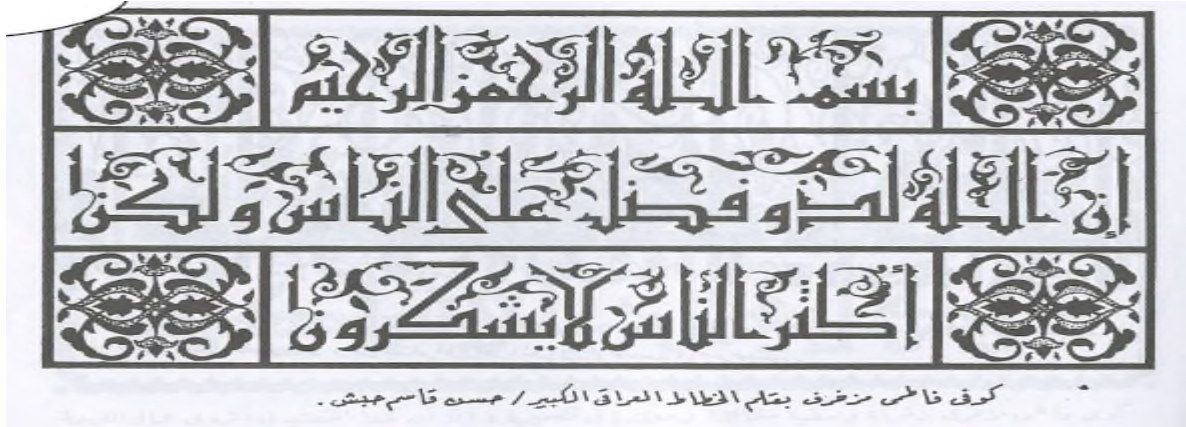 بسم الله الرحمن الرحيم
إن الله لذو فضل على الناس ولكن
أكثر الناس لا يشكرون
كوفي فاطمي مزخرف بقلم الخطاط العراقي الكبير / حسن قاسم حبش .